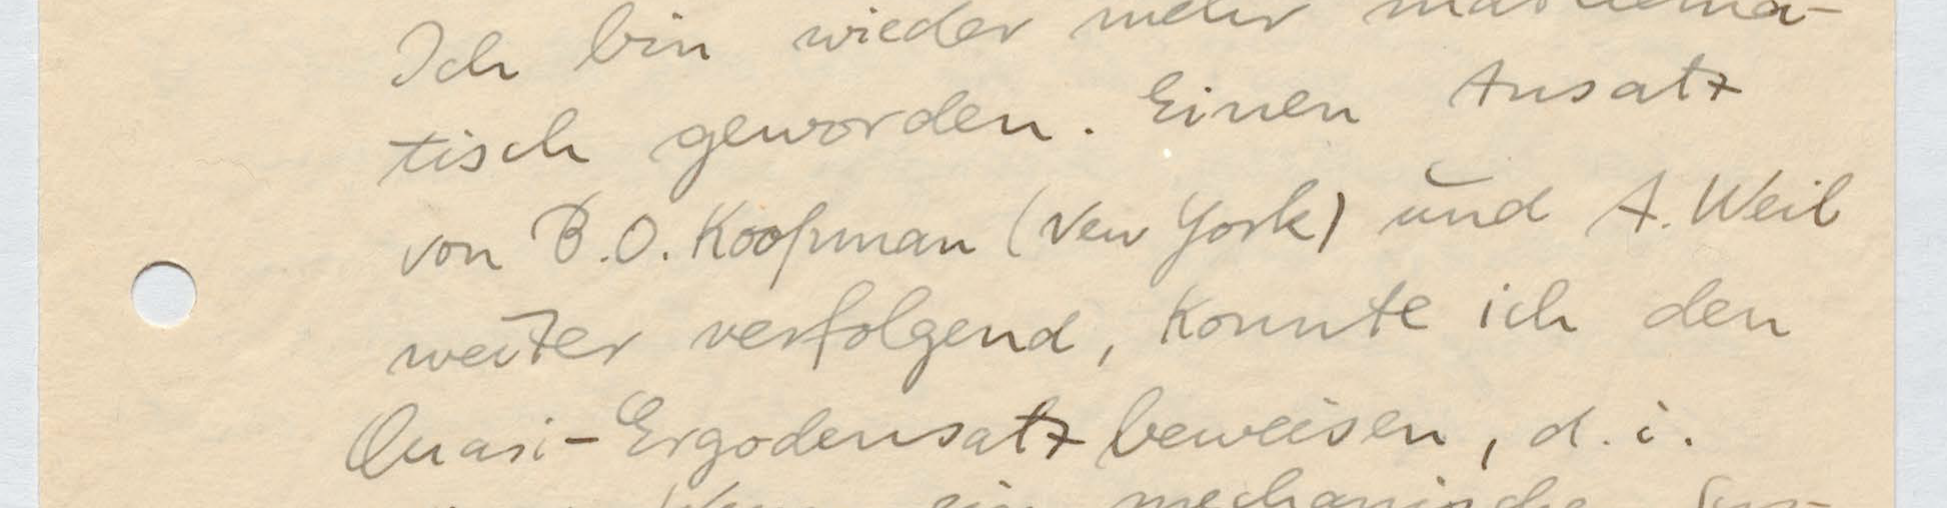 Ich bin wieder mehr mathema-
tisch geworden. Einen Ansatz
von B.O. Koopman (New York) und A. Weil
weiter verfolgend, konnte ich den
Quasi-Ergodensatz beweisen, d. i.
Wenn ein mechanische